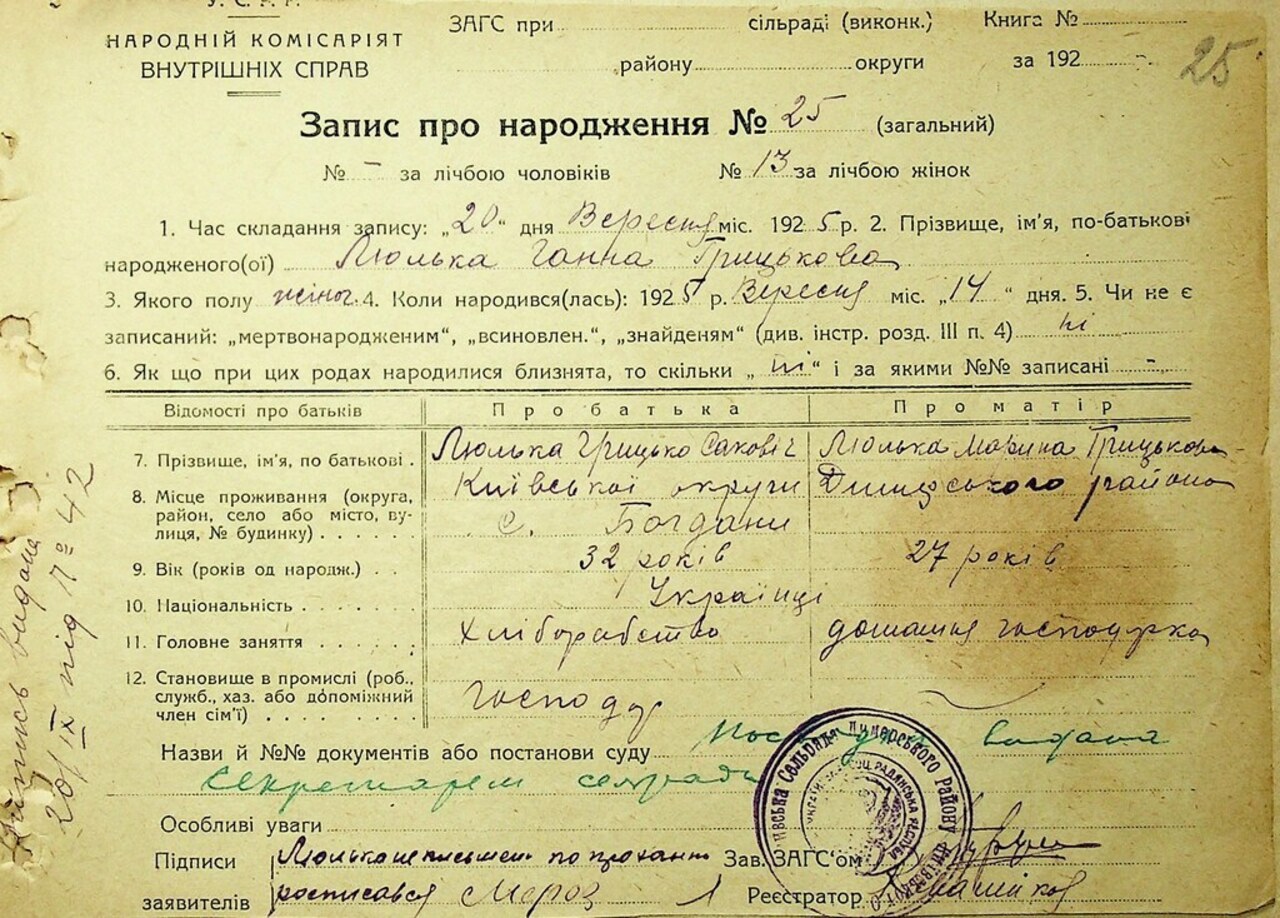 У.С.Р.Р.
НАРОДНІЙ КОМІСАРІЯТ
ВНУТРІШНІХ СПРАВ
ЗАГС при сільраді (виконк.) Книга №
району округи за 192
25
Запис про народження № 25 (загальний)
№ – за лічбою чоловіків № 13 за лічбою жінок
1. Час складання запису: „20“ дня Вересня міс. 1925 р. 2. Прізвище, ім'я, по-батькові
народженого(ої) Люлька Ганна Грицькова
3. Якого полу жіноч. 4. Коли народився(лась): 1925 р. Вересня міс. „14“ дня. 5. Чи не є
записаний: „мертвонародженим“, „всиновлен.“, „знайденям“ (див. інстр. розд. III п. 4) ні
6. Як що при цих родах народилися близнята, то скільки „ні“ і за якими №№ записані –
Відомості про батьків Про батька Про матір
7. Прізвище, ім'я, по батькові . Люлька Грицько Сакович Люлька Марина Грицькова
8. Місце проживання (округа, Київської округи Димерського району
район, село або місто, ву-
лиця, № будинку) . . . . . . с. Богдани
9. Вік (років од народж.) . . 32 років 27 років
10. Національність . . . . . . . Українці
11. Головне заняття . . . . . . Хліборобство домашня господарка
12. Становище в промислі (роб.,
служб., хаз. або допоміжний
член сім'ї) . . . . . . . . господар
Назви й №№ документів або постанови суду видана
секретарем сельради
Особливі уваги
Підписи Люлька неписьмен по проханню Зав. ЗАГС'ом
заявителів росписався Мероз Реєстратор
Сельрада Димерського Району
Випись видана
20/IX під № 42